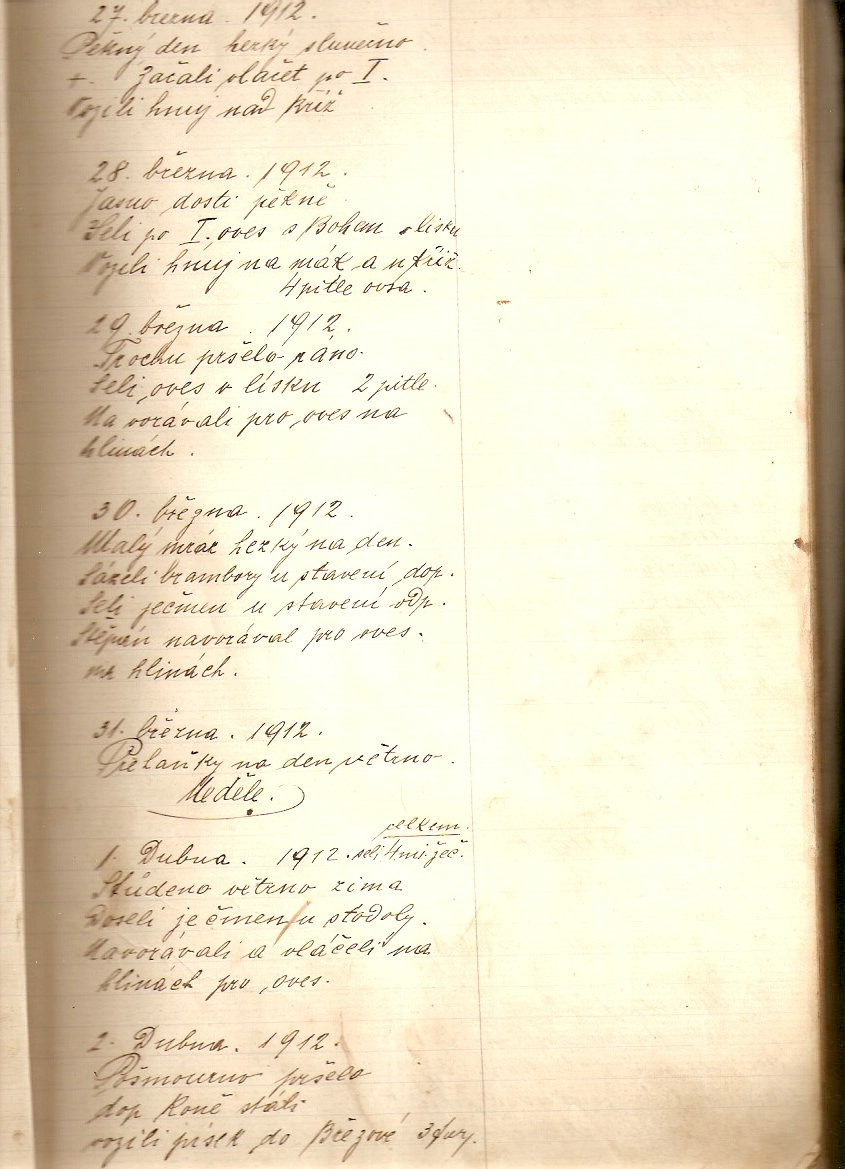 27. března. 1912.
Pěkný den hezký slunečno.
+. Začali vláčet po I.
Vozili hnuj nad Kříž
28. března. 1912.
Jasno dosti pěkně
Seli po I. oves s Bohem v lísku
Vozili hnuj na mák a u Kříž.
4 pitle ovsa.
29. března. 1912.
Trochu pršelo ráno.
Seli oves v lísku 2 pitle.
Navorávali pro oves na
hlinách.
30. března. 1912.
Malý mráz hezký na den.
Sázeli brambory u stavení dop.
Seli ječmen u stavení odp.
Štěpán navorával pro oves.
na hlinách.
31. března. 1912.
na den větrno.
Neděle.
celkem.
1. Dubna. 1912. seli 4 mi. ječ.
Studeno větrno zima
Doseli ječmen u stodoly.
Navorávali a vláčeli na
hlinách pro oves.
2. Dubna. 1912.
Pošmourno pršelo
dop Koně stáli
vozili písek do Březové 3 fury.